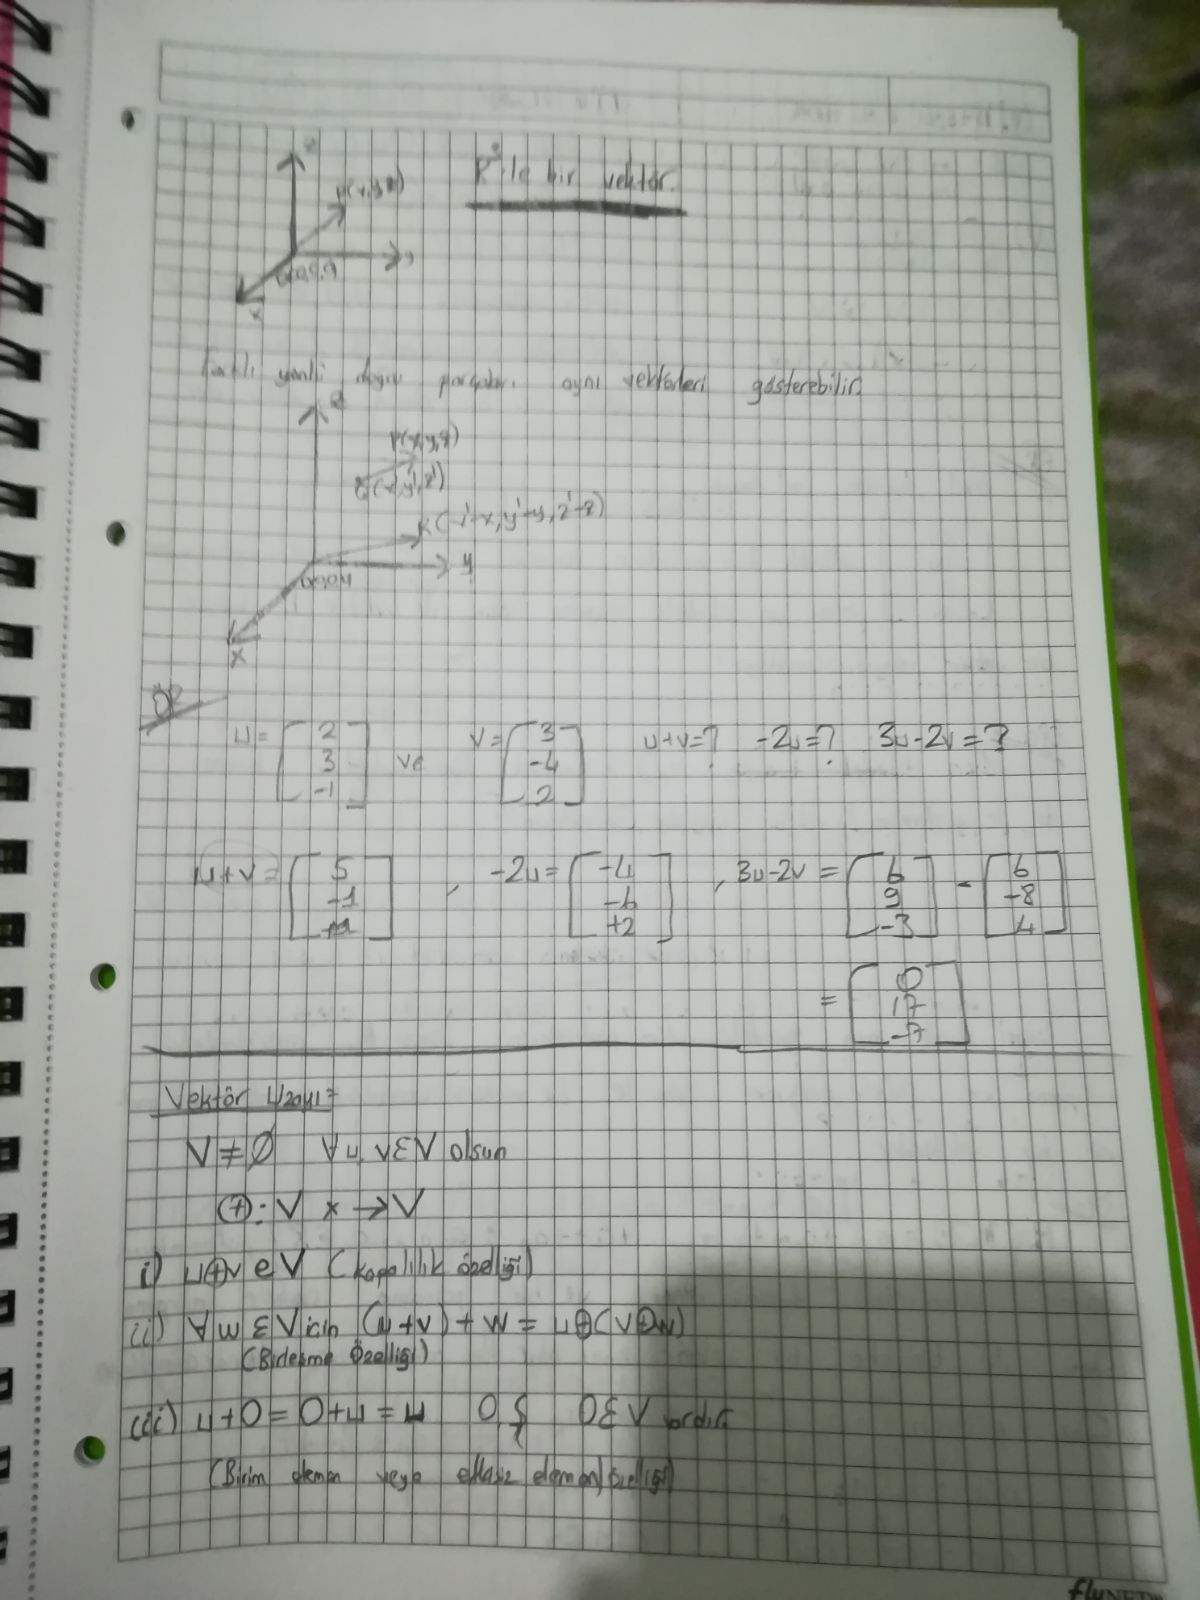 R³ de bir vektör.
z
P(x,y,z)
y
O(0,0,0)
x
Farklı yönlü doğru parçaları aynı vektörleri gösterebilir.
z
P(x,y,z)
Q(x',y',z')
K(x'-x, y'-y, z'-z)
y
x
ÖR
u = [2 3 -1] ve v = [3 -4 2] u+v=? -2u=? 3u-2v=?
u+v = [5 -1 +1] , -2u = [-4 -6 +2] , 3u-2v = [6 9 -3] - [6 -8 4]
= [0 17 -7]
Vektör Uzayı:
V ≠ ∅ ∀ u, v ε V olsun
⊕: V x → V
i) u⊕v e V (kapalılık özelliği)
ii) ∀ w ε V için (u+v) + w = u⊕(v⊕w)
(Birleşme Özelliği)
iii) u+0=0+u=u 0 ε V vardır
(Birim eleman veya etkisiz eleman özelliği)
flyNET